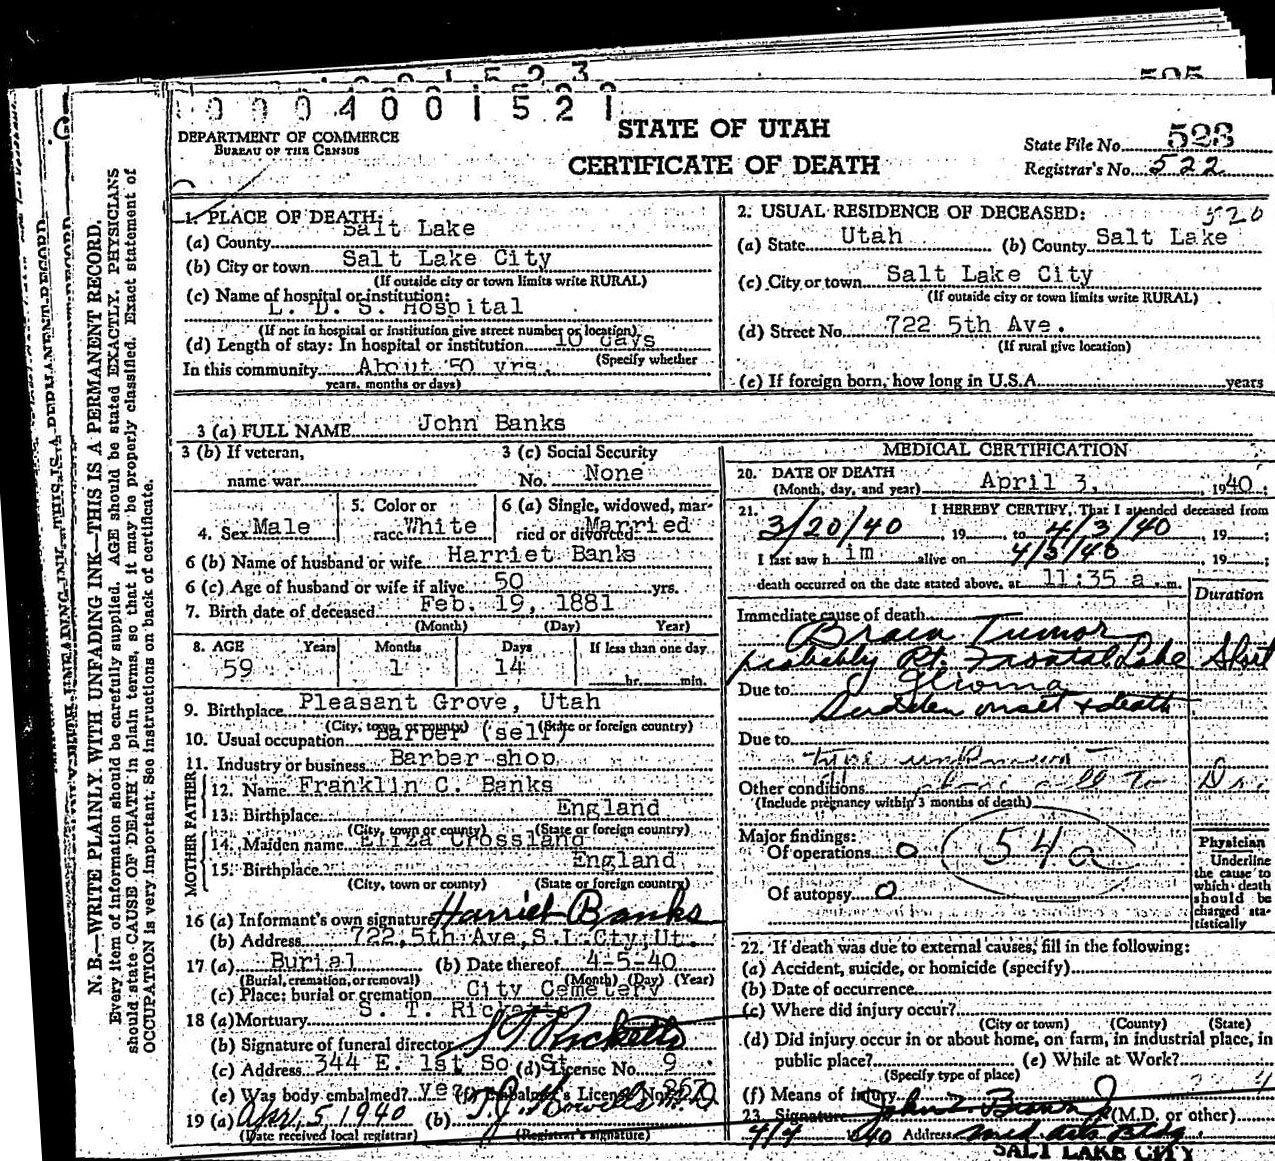 0 0 0 4 0 0 1 5 2 1
STATE OF UTAH
CERTIFICATE OF DEATH
DEPARTMENT OF COMMERCE
BUREAU OF THE CENSUS
State File No. 523
Registrar's No. 522
520
1. PLACE OF DEATH:
(a) County Salt Lake
(b) City or town Salt Lake City
(If outside city or town limits write RURAL)
(c) Name of hospital or institution:
L. D. S. Hospital
(If not in hospital or institution give street number or location)
(d) Length of stay: In hospital or institution 10 days
(Specify whether
In this community About 50 yrs.
years, months or days)
2. USUAL RESIDENCE OF DECEASED:
(a) State Utah (b) County Salt Lake
(c) City or town Salt Lake City
(If outside city or town limits write RURAL)
(d) Street No. 722 5th Ave.
(If rural give location)
(e) If foreign born, how long in U.S.A. years
3 (a) FULL NAME John Banks
3 (b) If veteran,
name war
3 (c) Social Security
No. None
4. Sex Male
5. Color or
race White
6 (a) Single, widowed, mar-
ried or divorced Married
6 (b) Name of husband or wife Harriet Banks
6 (c) Age of husband or wife if alive 50 yrs.
7. Birth date of deceased Feb. 19, 1881
(Month) (Day) Year)
8. AGE Years Months Days If less than one day
59 1 14 hr. min.
9. Birthplace Pleasant Grove, Utah
(City, town or county) (State or foreign country)
10. Usual occupation Barber (self)
11. Industry or business Barber shop
FATHER
12. Name Franklin C. Banks
13. Birthplace England
(City, town or county) (State or foreign country)
MOTHER
14. Maiden name Eliza Crossland
15. Birthplace England
(City, town or county) (State or foreign country)
16 (a) Informant's own signature Harriet Banks
(b) Address 722, 5th Ave, S.L. Cty, Ut.
17 (a) Burial (b) Date thereof 4-5-40
(Burial, cremation, or removal) (Month) (Day) (Year)
(c) Place: burial or cremation City Cemetery
18 (a) Mortuary S. T. Ricketts
(b) Signature of funeral director S T Ricketts
(c) Address 344 E. 1st So. St. (d) License No. 9
(e) Was body embalmed? yes (f) Embalmer's License No.
19 (a) Apr. 5, 1940 (b)
(Date received local registrar) (Registrar's signature)
MEDICAL CERTIFICATION
20. DATE OF DEATH
(Month, day, and year) April 3, 1940
21. I HEREBY CERTIFY, That I attended deceased from
3/20/40, 19 to 4/3/40, 19 ;
I last saw h im alive on 4/3/40 19 ;
death occurred on the date stated above, at 11:35 a.m.
Duration
Immediate cause of death
Brain Tumor
probably Rt. Frontal Lobe Short
Due to Glioma
Sudden onset & death
Due to
type unknown
Other conditions phone call to Dr.
(Include pregnancy within 3 months of death)
Major findings:
Of operations 0
54a
Of autopsy 0
Physician
Underline
the cause to
which death
should be
charged sta-
tistically
22. If death was due to external causes, fill in the following:
(a) Accident, suicide, or homicide (specify)
(b) Date of occurrence
(c) Where did injury occur?
(City or town) (County) (State)
(d) Did injury occur in or about home, on farm, in industrial place, in
public place? (e) While at Work?
(Specify type of place)
(f) Means of injury
23. Signature (M.D. or other)
4/4 1940 Address Med Arts Bldg.
SALT LAKE CITY
N. B.—WRITE PLAINLY WITH UNFADING INK—THIS IS A PERMANENT RECORD.
Every item of information should be carefully supplied. AGE should be stated EXACTLY. PHYSICIANS
should state CAUSE OF DEATH in plain terms, so that it may be properly classified. Exact statement of
OCCUPATION is very important. See instructions on back of certificate.